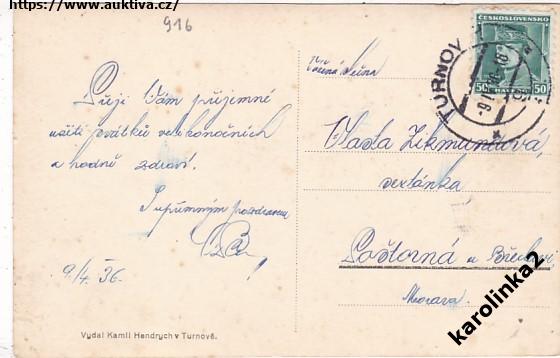 https://www.auktiva.cz/
916
Přeji Vám příjemné
užití svátků velikonočních
a hodně zdraví.
S upřímným pozdravem
9/4. 36.
Vydal Kamil Hendrych v Turnově.
ČESKOSLOVENSKO
50 HALÉŘŮ 50
TURNOV
Vážená slečna
Vlasta Zikmundová,
Poštorná u Břeclavi,
Morava.
karolinka2